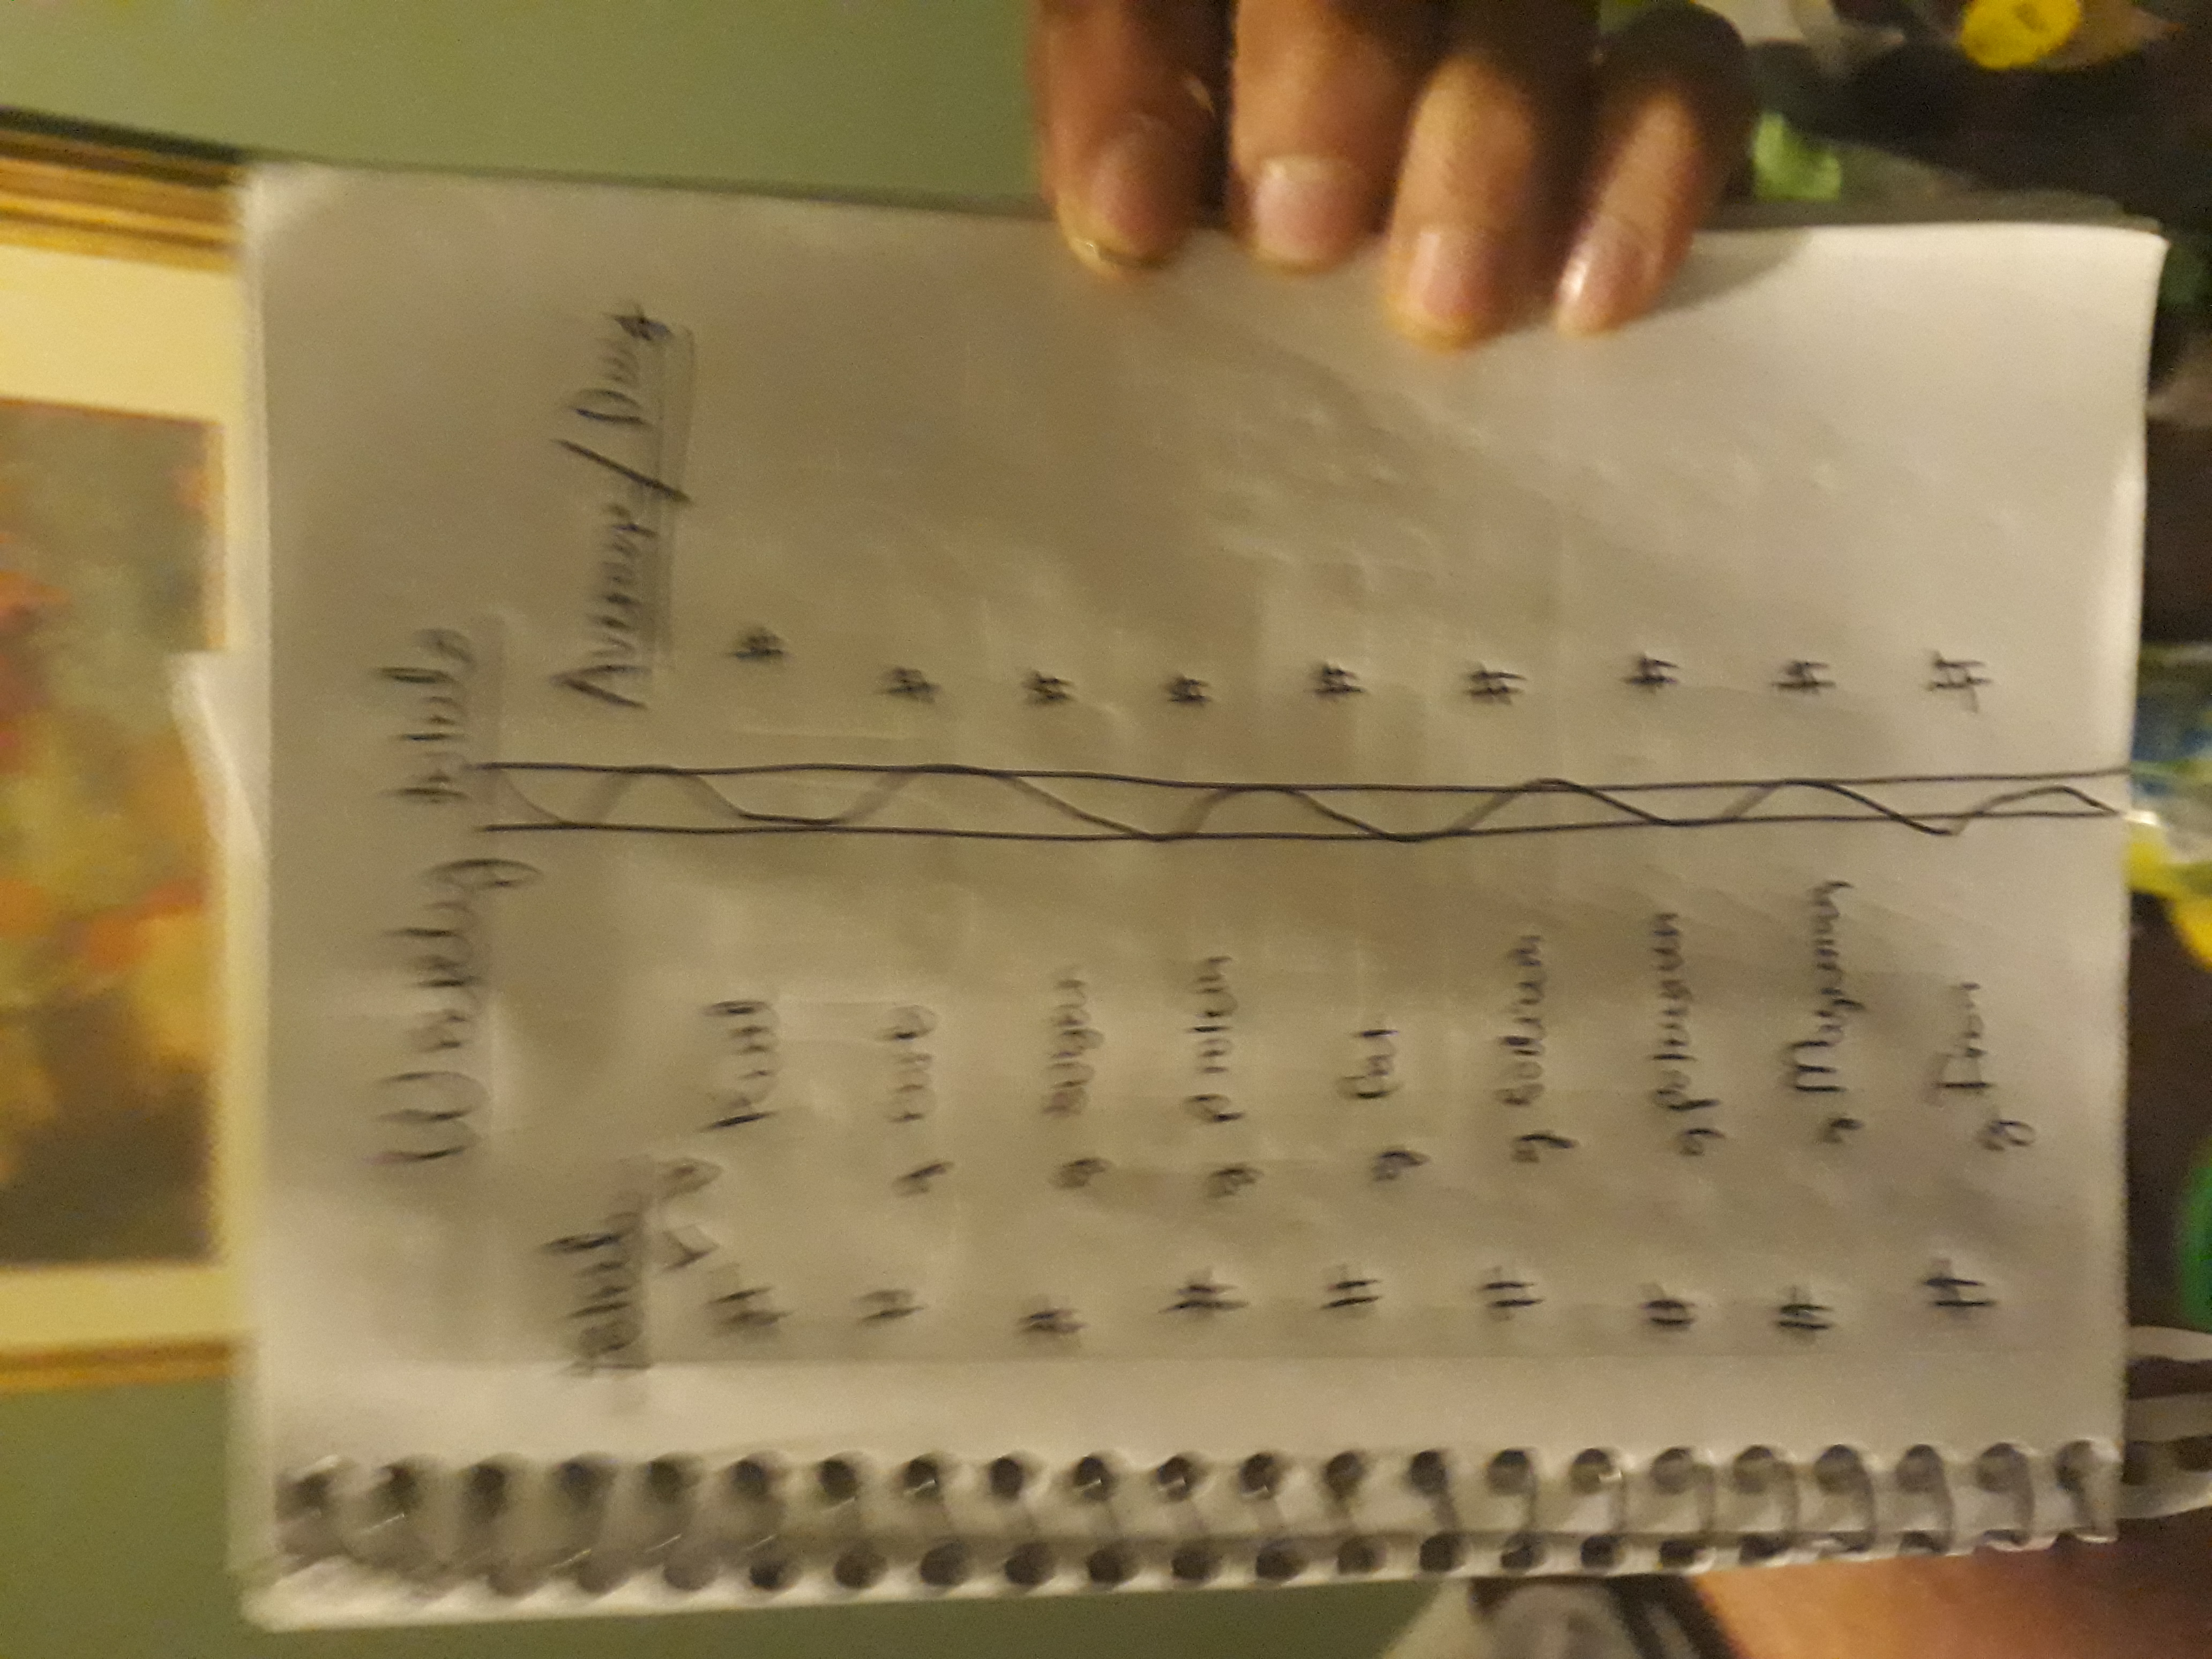 Weekly totals
total Average/Day
# Kcal #
# g carb #
# g sugar #
# g protein #
# g Fat #
# g sodium #
# g potassium #
# g #
# g Iron #